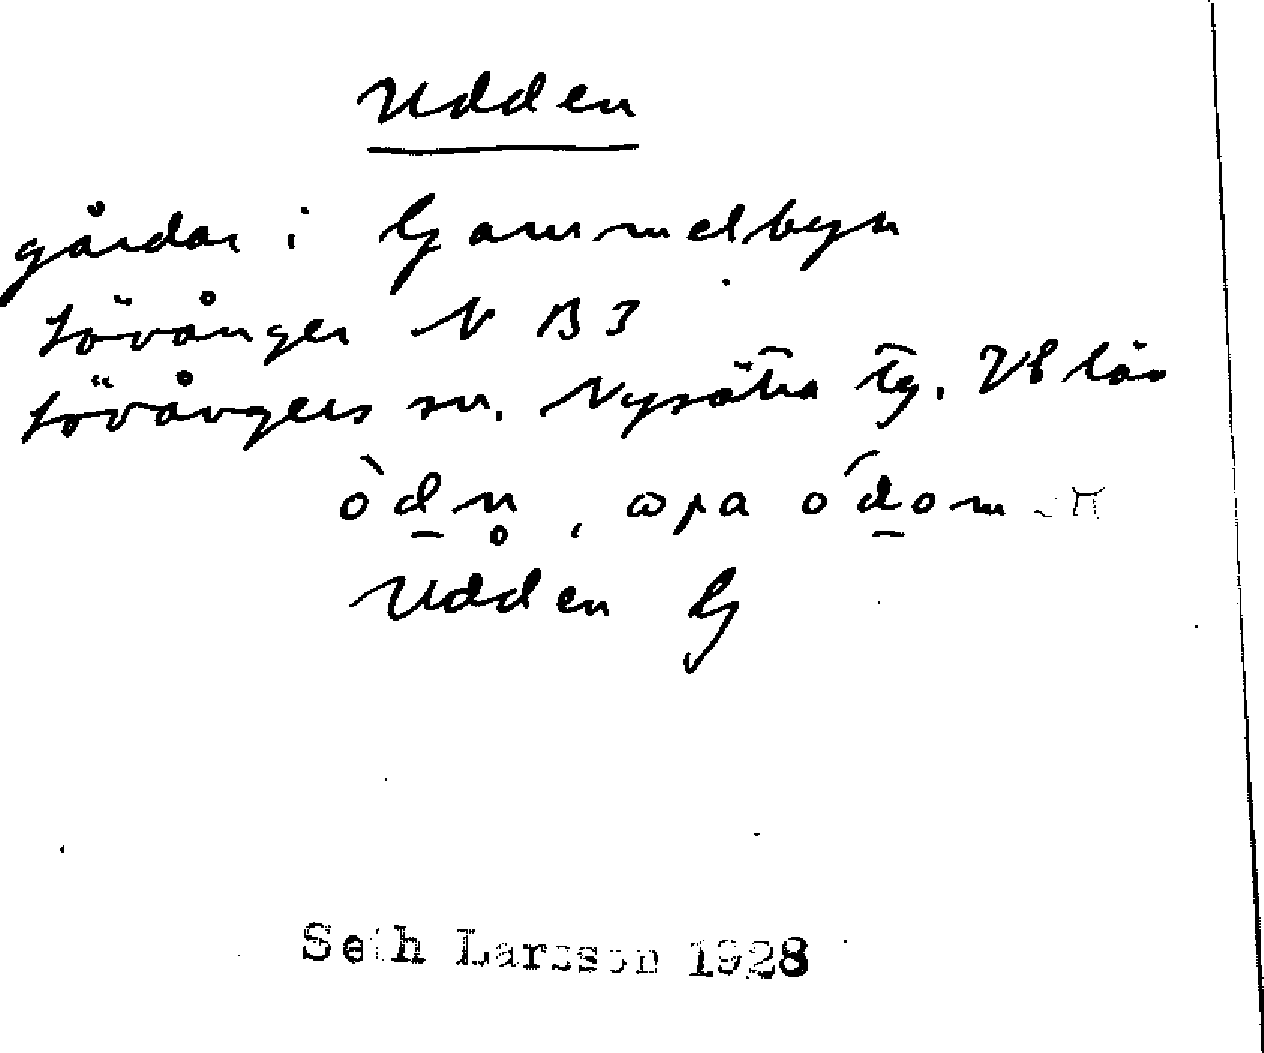 Udden
gårdar i Gammelbyn
Lövånger N B3
Lövångers sn. Nysätra tg. VB län
òd̲n̥, apa ód̲om
Udden G
Seth Larsson 1928